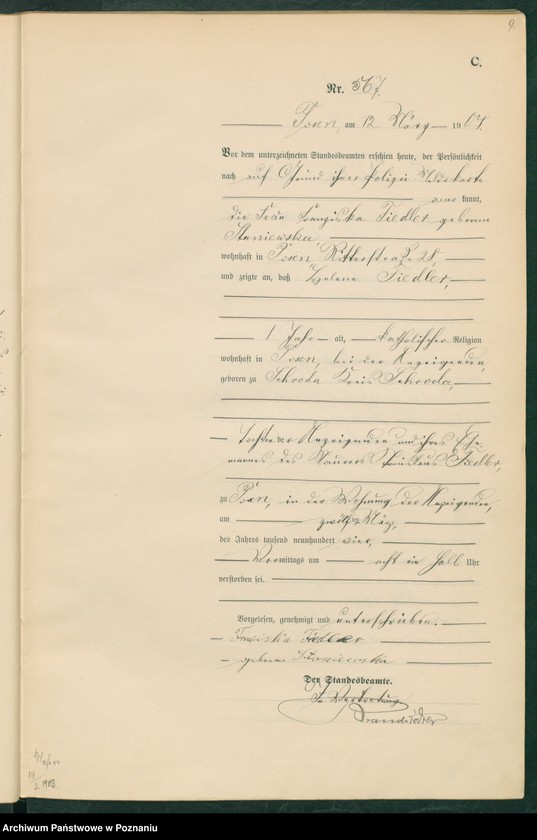 9.
C.
Nr. 567.
Posen, am 12 März 1904.
Vor dem unterzeichneten Standesbeamten erschien heute, der Persönlichkeit
nach auf Grund ihrer Polizei Meldekarte
aner kannt,
die Frau Franziska Fiedler geborene
Staniewska,
wohnhaft in Posen, Ritterstraße 28,
und zeigte an, daß Helene Fiedler,
1 Jahr alt, katholischer Religion
wohnhaft in Posen, bei der Anzeigenden,
geboren zu Schroda Kreis Schroda,
Tochter der Anzeigenden und ihres Ehe-
mannes des Maurers Fiedler,
zu Posen, in der Wohnung der Anzeigenden,
am zwölften März,
des Jahres tausend neunhundert vier,
Vormittags um acht ein halb Uhr
verstorben sei.
Vorgelesen, genehmigt und unterschrieben.
Fiedler
geborene Staniewska
Der Standesbeamte.
In Vertretung
Brandstädter
1908.
Archiwum Państwowe w Poznaniu